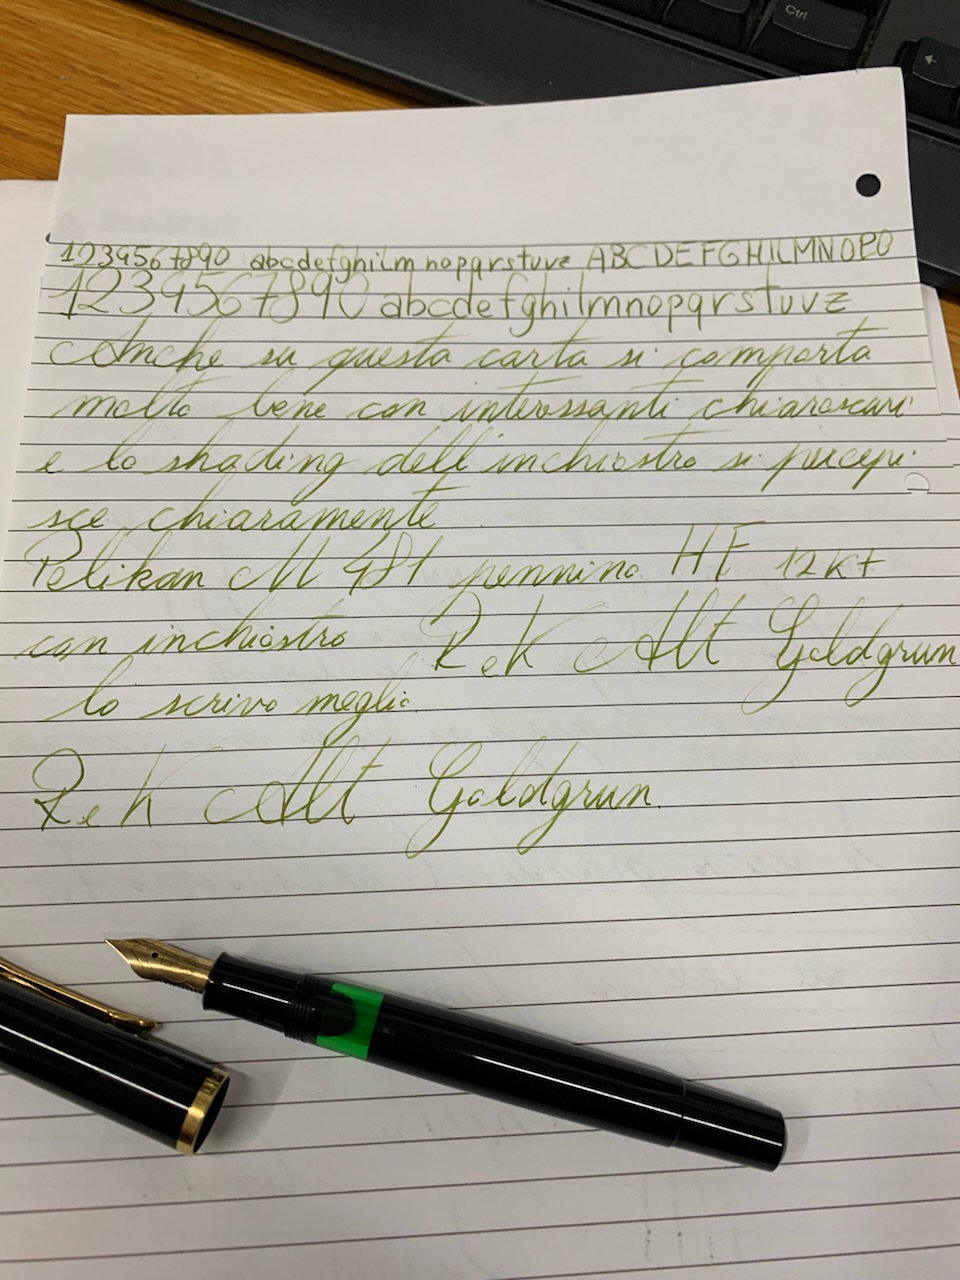 1234567890 abcdefghilmnopqrstuvz ABCDEFGHILMNOPQ
1234567890 abcdefghilmnopqrstuvz
Anche su questa carta si comporta
molto bene con interessanti chiaroscuri
e lo shading dell'inchiostro si percepi
sce chiaramente
Pelikan M 481 pennino HF 12 Kt
con inchiostro R e K Alt Goldgrun
lo scrivo meglio
R e K Alt Goldgrun
Ctrl